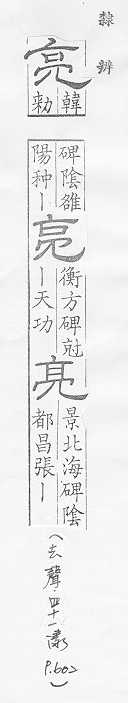 隸辨
亮
韓
勑
碑陰雒
陽种丨
亮
衡方碑尅
丨天功
亮
景北海碑陰
都昌張丨
(去聲.四十一漾 P.602)